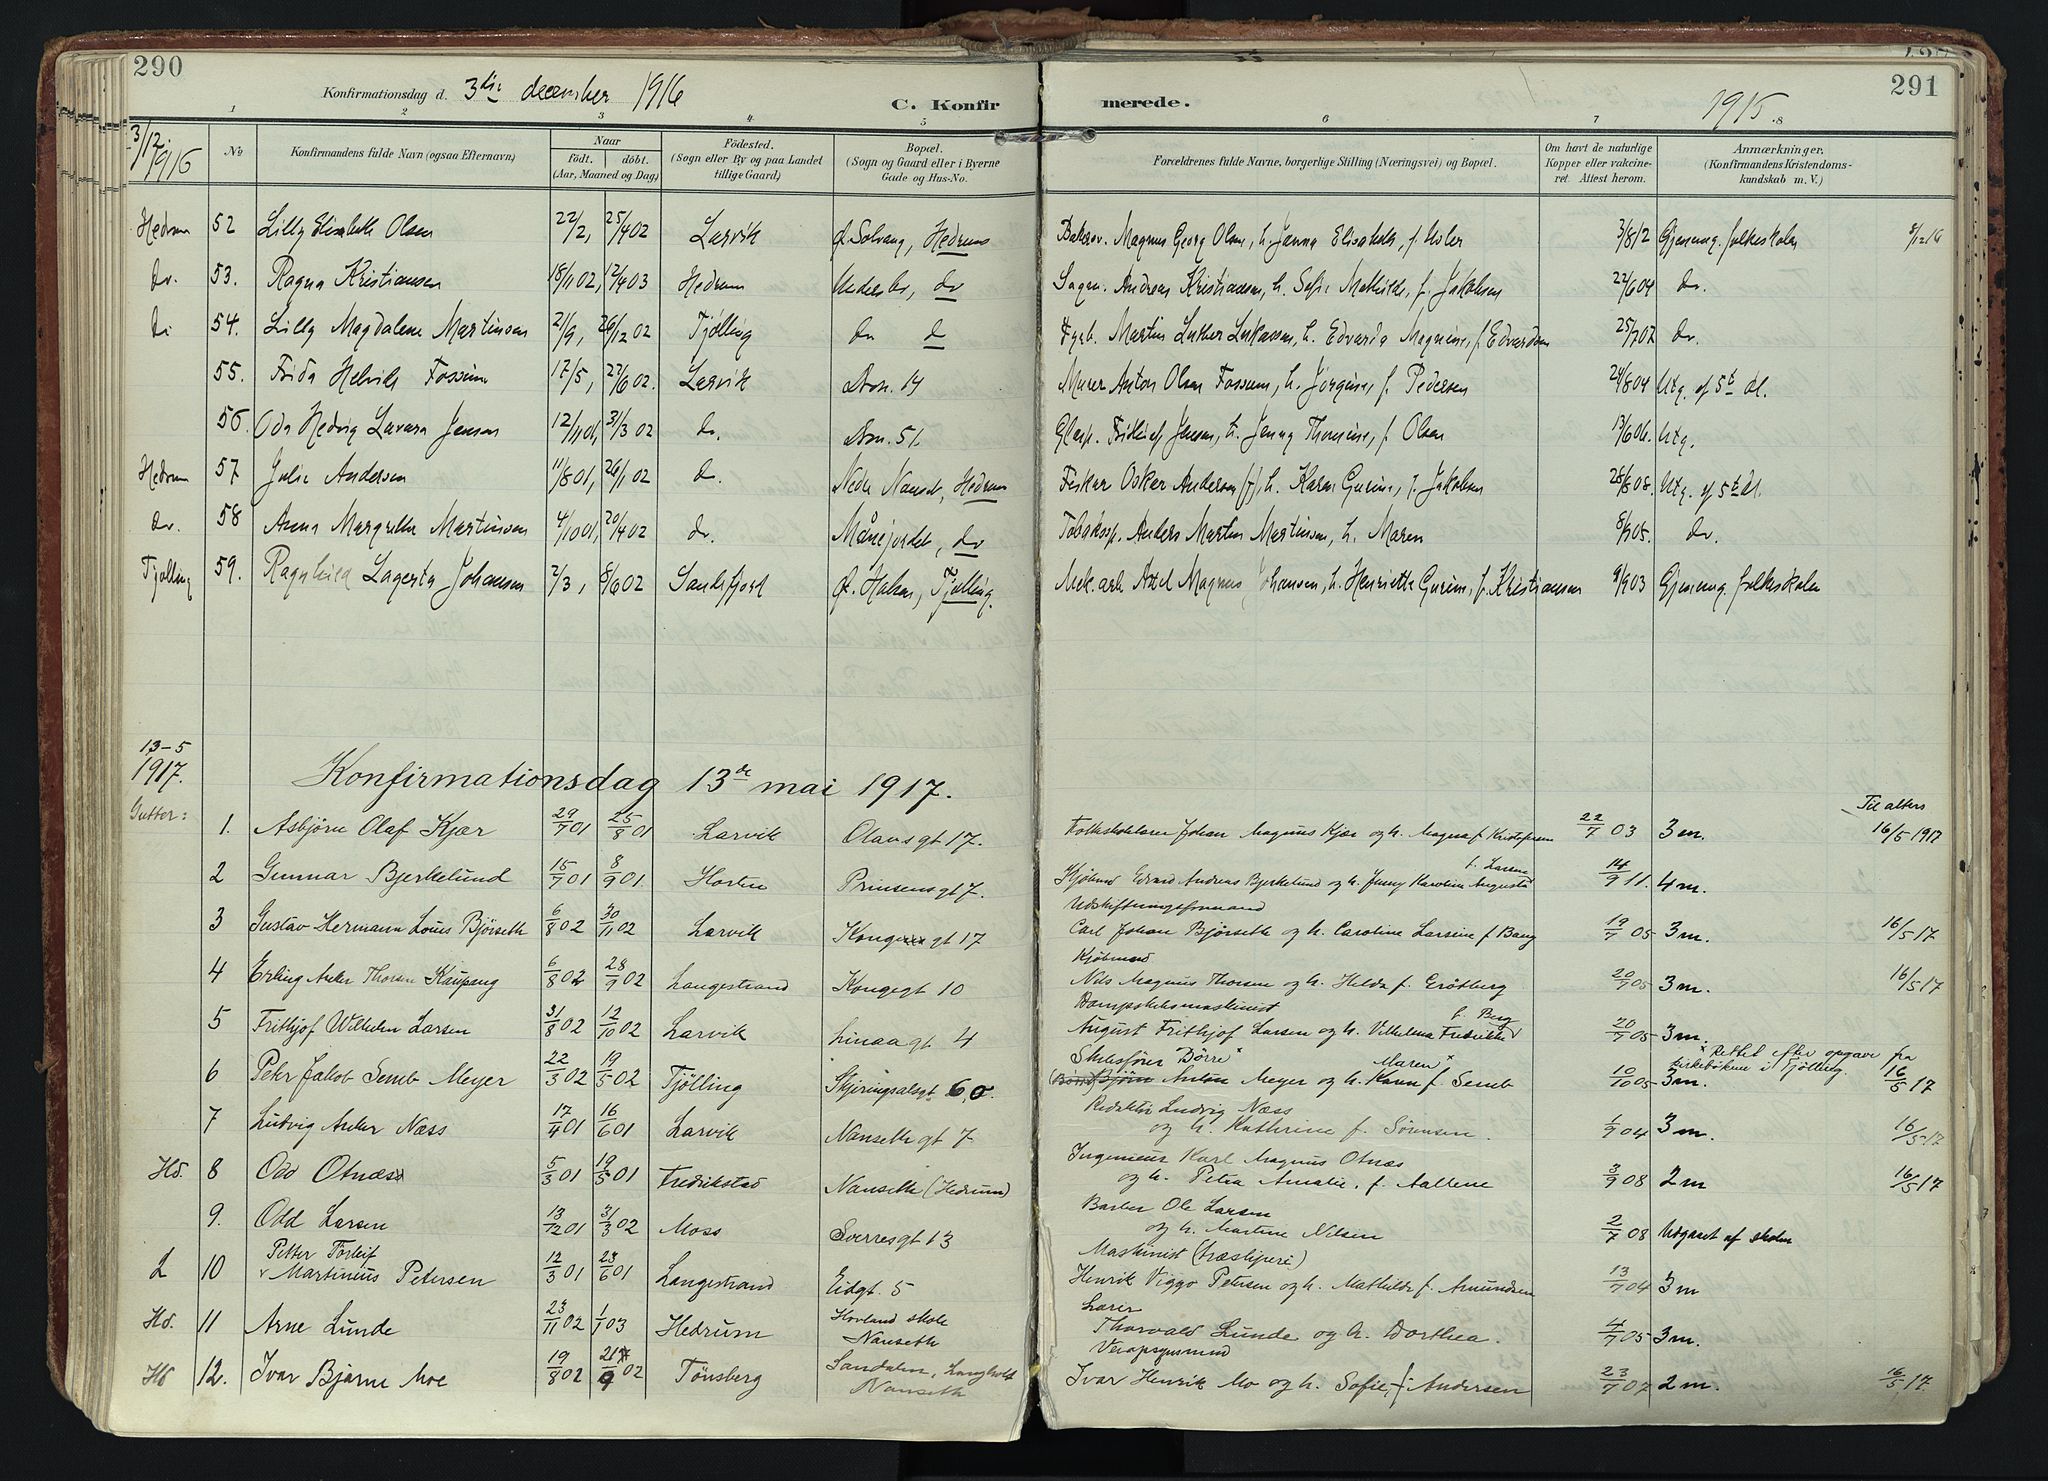 290
Konfirmationsdag d. 3die december 1916
C. Konfirmerede.
1915
291
1 2 3 4 5 6 7 8
3/12 1916
No
Konfirmandens fulde Navn (ogsaa Efternavn)
Naar
født. døbt.
(Aar, Maaned og Dag)
Fødested.
(Sogn eller By og paa Landet
tillige Gaard)
Bopæl.
(Sogn og Gaard eller i Byerne
Gade og Hus-No.
Forældrenes fulde Navne, borgerlige Stilling (Næringsvei) og Bopæl.
Om havt de naturlige
Kopper eller vakcine-
ret. Attest herom.
Anmærkninger.
(Konfirmandens Kristendoms-
kundskab m. V.)
Hedrum 52 Lilly Elisabeth Olsen 22/2, 25/4 02 Larvik Ø. Solvang, Hedrum Magnus Georg Olsen, h. Janna Elisabeth, f. Holer 3/8 12 Gjennemg. folkeskolen 8/12 16
do. 53. Ragna Kristiansen 18/11 02, 12/4 03 Hedrum do Sagm. Andreas Kristiansen, h. Sofie Mathilde, f. Jakobsen 22/6 04 do.
do 54. Lilly Magdalene Martinsen 21/9, 26/12 02 Tjølling do do Fyrb. Martin Luther Lukassen, h. Edvarda Magnine, f. Edvardsen 25/7 07 do.
55. Frida Helvik Fossum 17/5, 22/6 02. Larvik Dron. 14 Murer Anton Olsen Fossum, h. Jørgine, f. Pedersen 24/8 04 Utg. af 5te kl.
56. Oda Hedvig Lavara Jensen 12/11 01, 31/3 02 do. Dron. 51. Glasp. Fridtjof Jensen, h. Jenny Thomine, f. Olsen 13/6 06. Utg.
Hedrum 57 Julie Andersen 11/8 01, 26/1 02 do. Nedre Nanset, Hedrum Fisker Oskar Andersen, h. Karen Gurine, f. Jakobsen 28/8 08. Utg. af 5te kl.
do. 58 Anna Margrethe Martinsen 4/10 01, 20/4 02 do. Månejordet, do Tobaksp. Anders Martin Martinsen, h. Maren 8/9 05. do.
Tjølling 59. Ragnhild Lagerta Johansen 2/3, 8/6 02 Sandefjord Ø. Halsen, Tjølling. Mek. arb. Axel Magnus Johansen, h. Henriette Gurine, f. Kristiansen 9/9 03 Gjennemg. folkeskolen
13-5
1917.
Konfirmationsdag 13de mai 1917.
Gutter:
Til alters
1. Asbjørn Olaf Kjær 29/7 01 25/8 01 Larvik Olavsgt 17. Folkeskolelærer Johan Magnus Kjær og h. Magna f. Kristofersen 22/7 03 3 m. 16/5 1917
2 Gunnar Bjerkelund 15/7 01 8/9 01 Horten Prinsensgt 7. Kjøbmd Edvard Andreas Bjerkelund og h. Jenny Karoline Augusta f. Larsen 14/9 11. 4 m.
Udskiftningsformand
3 Gustav Hermann Louis Bjørseth 6/8 02 30/11 02 Larvik Kongegt 17 Carl Johan Bjørseth og h. Caroline Larsine f. Bang 19/7 05 3 m. 16/5 17
Kjøbmand
4 Erling Anker Thorsen Kaupang 6/8 02 28/9 02 Langestrand Kongegt 10 Nils Magnus Thorsen og h. Hilda f. Grøtberg 20/9 05 3 m. 16/5 17
Dampskibsmaskinist
5 Frithjof Wilhelm Larsen 31/8 02 12/10 02 Larvik Linaagt 4 August Frithjof Larsen og h. Vilhelmine Fredrikke f. Berg 20/7 05 3 m.
x Rettet efter opgave fra
kirkebøkene i Tjølling.
Skibsfører Börre x Maren x
6 Peter Jakob Semb Meyer 22/3 02 19/5 02 Tjölling Skiringsalsgt 6 o. (Börre) Bjørn Anton Meyer og h. Karen f. Semb 10/10 05 3 m. 16/5 17
Redaktør Ludvig Næss
7 Ludvig Anker Næss 17/4 01 16/6 01 Larvik Nansethgt 7 og h. Kathrine f. Sørensen. 1/9 04 3 m. 16/5 17
Ingeniør Karl Magnus Otnæs
Hd. 8 Odd Otnæs 5/3 01 19/5 01 Fredrikstad Nanseth (Hedrum) og h. Petra Amalie, f. Aallene 3/9 08 2 m 16/5 17
Barber Ole Larsen
9. Odd Larsen 13/12 01 31/3 02 Moss Sverresgt 13 og h. Martine Nilsen 2/7 08 Utgaaet af skolen
Petter Torleif
Maskinist (træsliperi)
L 10 Martinius Petersen 12/3 01 23/6 01 Langestrand Eidgt. 5 Henrik Viggo Petersen og h. Mathilde f. Amundsen 13/7 04 3 m
Lærer
Hd. 11 Arne Lunde 23/11 02 1/1 03 Hedrum Hovland skole Nanseth Thorvald Lunde og h. Dorthea. 4/7 05 3 m.
Hd 12. Ivar Bjarne Moe 19/8 02 21/9 02 Tönsberg Sandalen, Nanseth Ivar Henrik Mo og h. Sofie, f. Andersen 23/7 07 2 m. 16/5 17